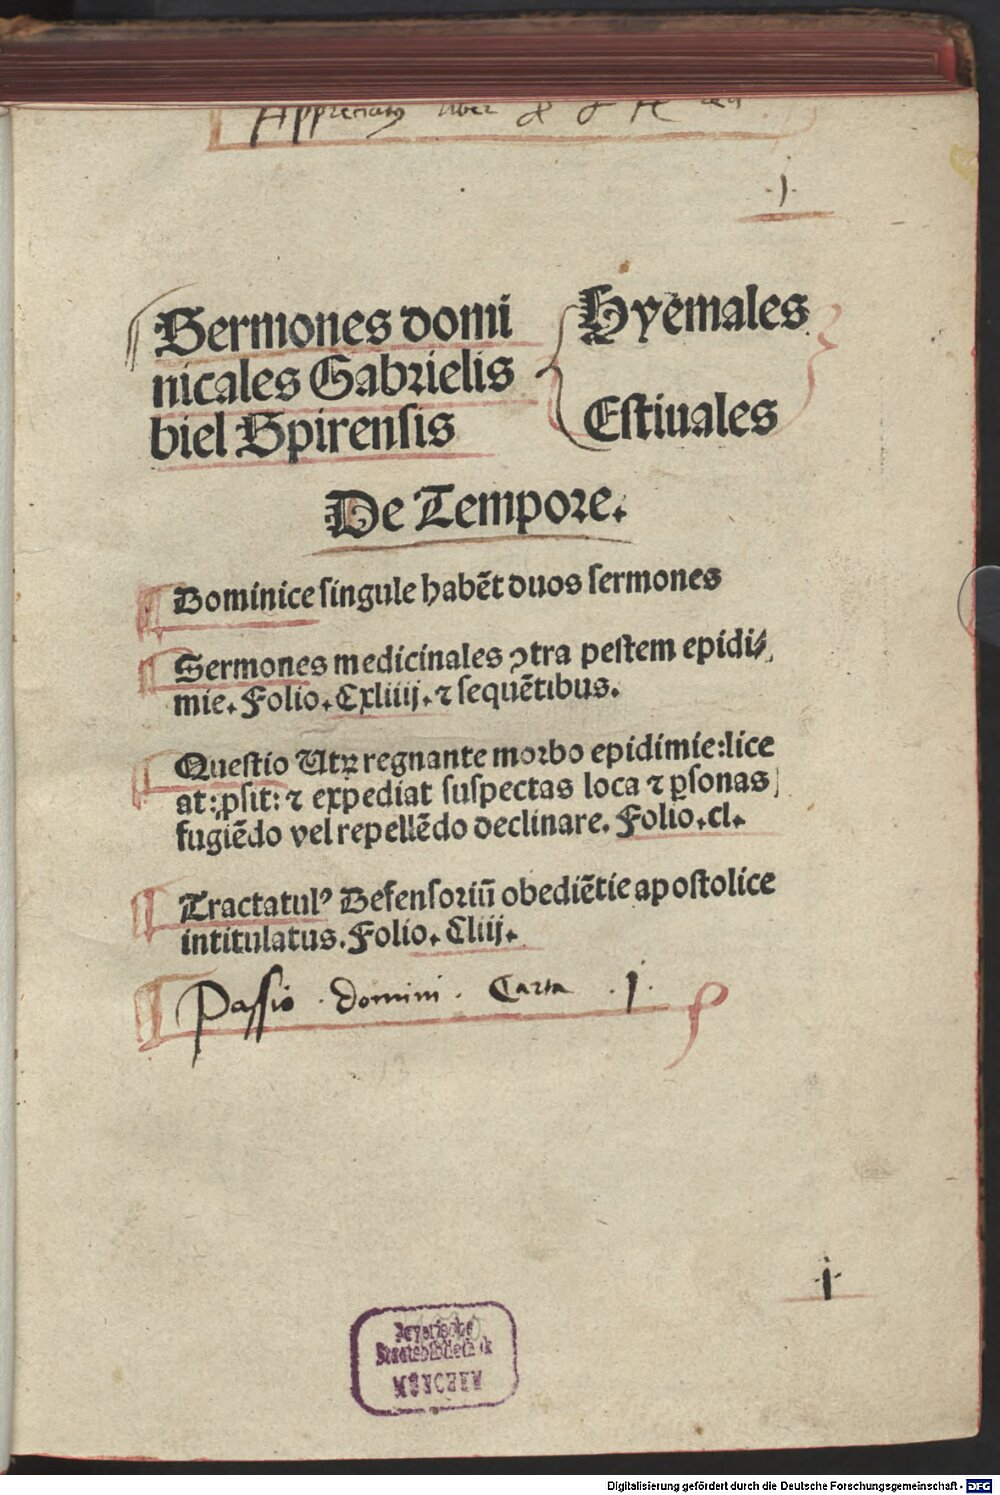 liber
.j.
Sermones domi
nicales Gabrielis
biel Spirensis
Hyemales
Estiuales
De Tempore.
Dominice singule habēt duos sermones
Sermones medicinales ꝯtra pestem epidi⸗
mie. Folio. Cxliiij. ⁊ sequētibus.
Questio Utꝝ regnante morbo epidimie: lice
at: ꝓsit: ⁊ expediat suspectas loca ⁊ ꝑsonas
fugiēdo vel repellēdo declinare. Folio. cl.
Tractatulꝰ Defensoriū obediētie apostolice
intitulatus. Folio. Cliij.
Passio . domini . Carta . j .
.i.
Bayerische
Staatsbibliothek
MÜNCHEN
Digitalisierung gefördert durch die Deutsche Forschungsgemeinschaft - DFG